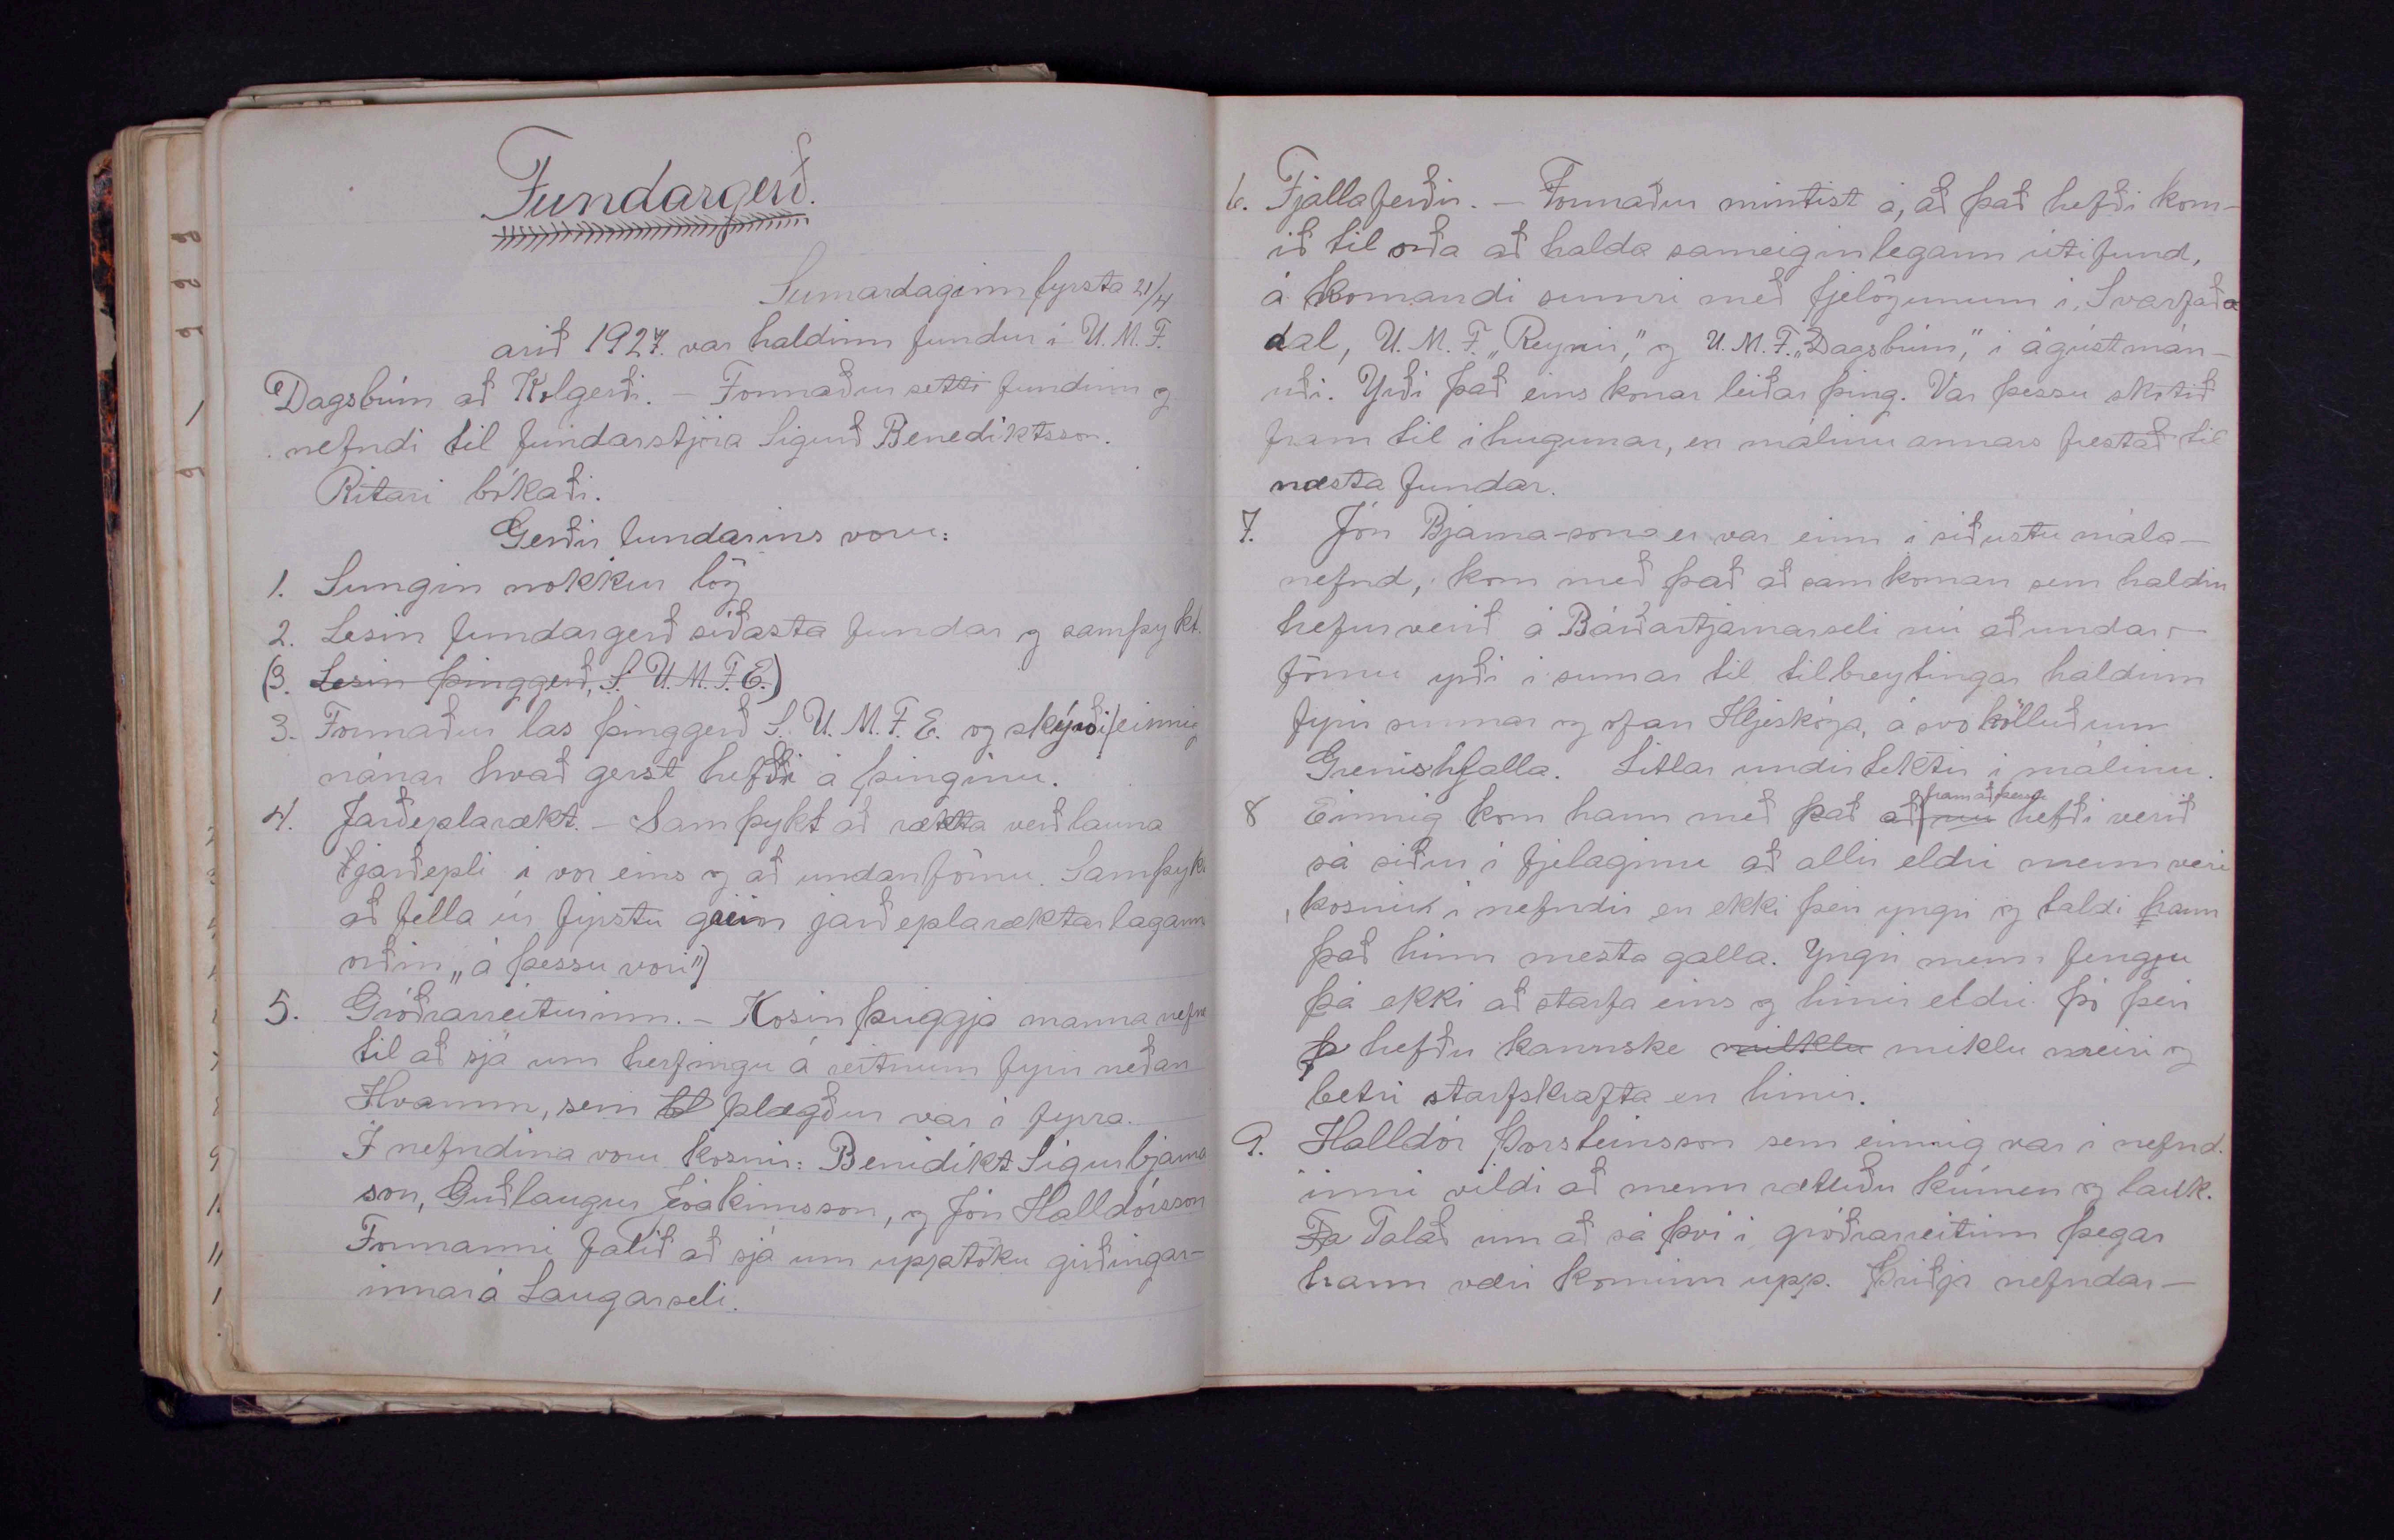 Fundargerð.
Sumardaginn fyrsta 21/4
árið 1927. var haldinn fundur í U.M.F.
Dagsbrún að Kolgerði. – Formaður setti fundinn og
nefndi til fundarstjóra Sigurð Benediktsson.
Ritari bókaði.
Gerðir fundarins voru:
1. Sungin nokkur lög
2. Lesin fundargerð síðasta fundar og samþykt.
(3. Lesin þinggerð, S. U.M.F.E.)
3. Formaður las þinggerð S. U. M. F. E. og skýrði einnig
nánar hvað gerst hefði á þinginu.
4. Jarðeplarækt. – Samþykt að rækta verðlauna
jarðepli í vor eins og að undanförnu. Samþykt
að fella úr fyrstu grein jarðeplaræktarlaganna
orðin „á þessu vori")
5. Gróðrarreiturinn. – Kosin þriggja manna nefnd
til að sjá um herfingu á reitnum fyrir neðan
Hvamm, sem plægður var í fyrra.
Í nefndina voru kosnir: Benidikt Sigurbjarna
son, Guðlaugur Jóakimsson, og Jón Halldórsson
Formanni falið að sjá um upptöku girðingar-
innar á Laugarseli.
6. Fjallaferðir. – Formaður mintist á, að það hefði kom-
ið til orða að halda sameiginlegann útifund,
á komandi sumri með fjelögunum í, Svarfaða
dal, U. M. F. „Reynir," og U. M. F. „Dagsbrún," í ágústmán-
uði. Yrði það eins konar leiðar þing. Var þessu skotið
fram til íhugunar, en málinu annars frestað til
næsta fundar.
7. Jón Bjarna-son er var einn í síðustu mála-
nefnd, kom með það að samkoman sem haldin
hefur verið á Bárðartjarnarseli nú að undan-
förnu yrði í sumar til tilbreytingar haldinn
fyrir sunnan og ofan Hljeskóga, á svo kölluðum
Grenishjalla. Litlar undirtektir í málinu.
8 Einnig kom hann með það að fram að þessu nú hefði verið
sá siður í fjelaginu að allir eldri menn veri
kosnir í nefndir en ekki þeir yngri og taldi hann
það hinn mesta galla. Yngri menn fengju
þá ekki að starfa eins og hinir eldri þó þeir
þ hefðu kannske milklu miklu meiri og
betri starfskrafta en hinir.
9. Halldór Þorsteinsson sem einnig var í nefnd.
inni vildi að menn ræktuðu kúmen og lauk.
Ta Talað um að sá því í gróðrarreitinn þegar
hann væri kominn upp. Þriðji nefndar-